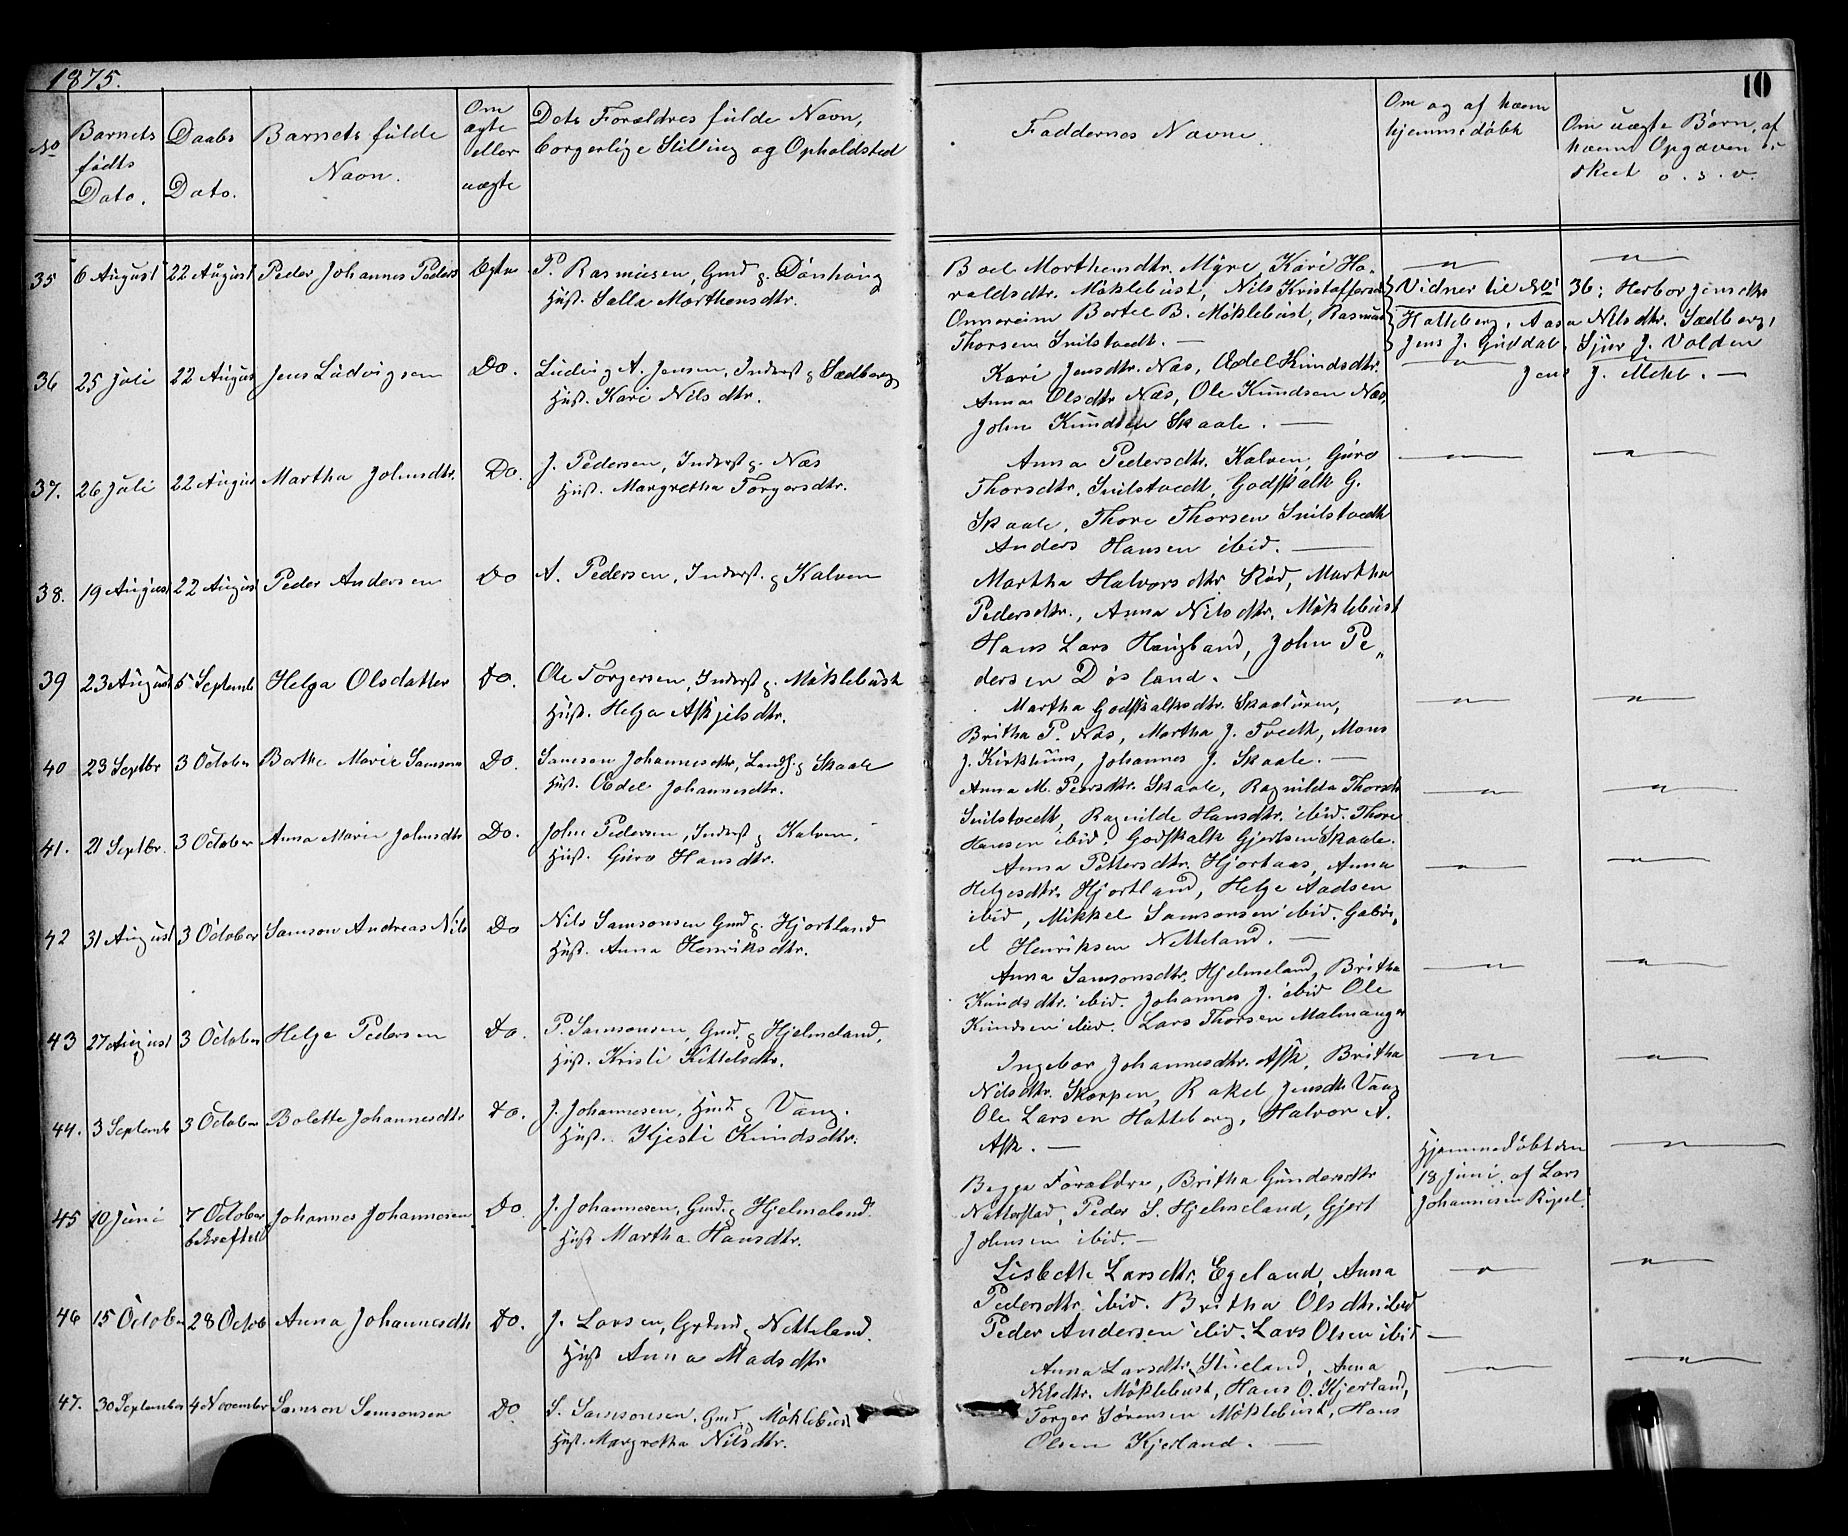 1875.
10
No
Barnets fødts Dato.
Daabs Dato.
Barnets fulde Navn.
Om ægte eller uægte
Dets Forældres fulde Navn, borgerlige Stilling og Opholdsted
Faddernes Navne
Om og af hvem hjemmedøbt
Om uægte Børn, af hvem Opgaven er skeet o. s. v.
35 6 August 22 August Peder Johannes Peders Ægte P. Rasmusen, Gmd g. Dønhaug
Hust. Salla Morthensdtr.
Boel Morthensdtr. Myre, Kari Ha-
raldsdtr. Møklebust, Nils Kristoffersen
Omvreim Bertel B. Møklebust, Rasmus
Thorsen Snilstvedt. —
— " —
— " —
Vidner til No 36: Herbor Jensdtr.
Hatteberg, Aasa Nilsdtr. Sædberg,
Jens J. Guddal, Sjur J. Valden
Jens J. Mehl. —
36 25 Juli 22 August Jens Ludvigsen Do. Ludvig A. Jensen, Inderst g Sædberg
Hust. Kari Nilsdtr.
Kari Jensdtr. Næs, Ædel Knudsdtr.
Anna Olsdtr Næs, Ole Knudsen Næs,
John Knudsen Skaale. —
— " —
37. 26 Juli 22 August Martha Johnsdtr. Do. J. Pedersen, Inderst g. Næs
Hust. Margretha Torgersdtr.
Anna Pedersdtr. Kalven, Guro
Thorsdtr. Snilstvedt, Godskalk G.
Skaale, Thore Thorsen Snilstvedt
Anders Hansen ibid. —
— " —
— " —
38. 19 August 22 August Peder Andersen Do A. Pedersen, Inderst. g Kalven
Martha Halvorsdtr. Rød, Martha
Pedersdtr., Anna Nilsdtr. Møklebust
Hans Lars Haugland, John Pe-
dersen Døsland. —
39 23 August 5 Septemb Helga Olsdatter Do. Ole Torgersen, Inderst g. Møklebust
Hust. Helga Askjelsdtr.
Martha Godskalksdtr. Skaaluren,
Britha P. Næs, Martha J. Tvedt, Mons
J. Kirkhuus, Johannes J. Skaale. —
— " —
— " —
40 23 Septbr 3 October Berthe Marie Samson Do. Samson Johannesdtr, Landh. g Skaale
Hust. Ædel Johannesdtr.
Anna M. Peersdtr. Skaale, Ragnilda Thorsdtr
Snilstvedt, Ragnilde Hansdtr. ibid. Thore
Hansen ibid. Godskalk Gjertsen Skaale.
— " —
— " —
41. 21 Septbr. 3 October Anna Marie Johnsdtr Do. John Pedersen, Inderst g Kalven,
Hust. Guro Hansdtr.
Anna Pettersdtr. Hjortaas, Anna
Helgesdtr. Hjortland, Helge Aadsen
ibid, Mikkel Samsonsen ibid. Gabri-
el Henriksen Netteland. —
— " —
— " —
42 31 August 3 October Samson Andreas Nils Do Nils Samsonsen Gmd g. Hjortland
Hust. Anna Henriksdtr.
Anna Samsonsdtr. Hjelmeland, Britha
Knudsdtr. ibid. Johannes J. ibid Ole
Knudsen ibid. Lars Thorsen Malmanger
— " —
— " —
43 27 August 3 October Helge Pedersen Do. P. Samsonsen, Gmd. g Hjelmeland,
Hust. Kristi Kittelsdtr.
Ingebor Johannesdtr. Ask, Britha
Nilsdtr. Skorpen, Rakel Jensdtr Vang
Ole Larsen Hatteberg, Halvor A.
Ask. —
— " —
— " —
44. 3 Septemb 3 October Bolette Johannesdtr Do. J. Johannesen, Hmd g Vang.
Hust. Kjesti Knudsdtr.
Begge Forældre, Britha Gundersdtr
Natterstad, Peder S. Hjelmeland, Gjert
Johnsen ibid. —
Hjemmedøbt den
18 Juni af Lars
Johannesen Ripel.
— " —
45 10 Juni 7 October bekræftet Johannes Johannesen Do. J. Johannesen, Gmd. g Hjelmeland.
Hust Martha Hansdtr.
Lisbeth Larsdtr. Egeland, Anna
Pedersdtr. ibid. Britha Olsdtr. ibid
Peder Andersen ibid. Lars Olsen ibid —
— " —
— " —
46 15 October 28 Octob Anna Johannesdtr Do. J. Larsen, Grdmd g Netteland.
Hust Anna Madsdtr
Anna Larsdtr. Stueland, Anna
Nilsdtr. Møklebust, Hans O. Kjerland,
Torger Sørensen Møklebust, Hans
Olsen Kjerland. —
— " —
— " —
47. 30 September 4 November Samson Samsonsen Do S. Samsonsen, Gmd. g Møklebust
Hust. Margretha Nilsdtr.